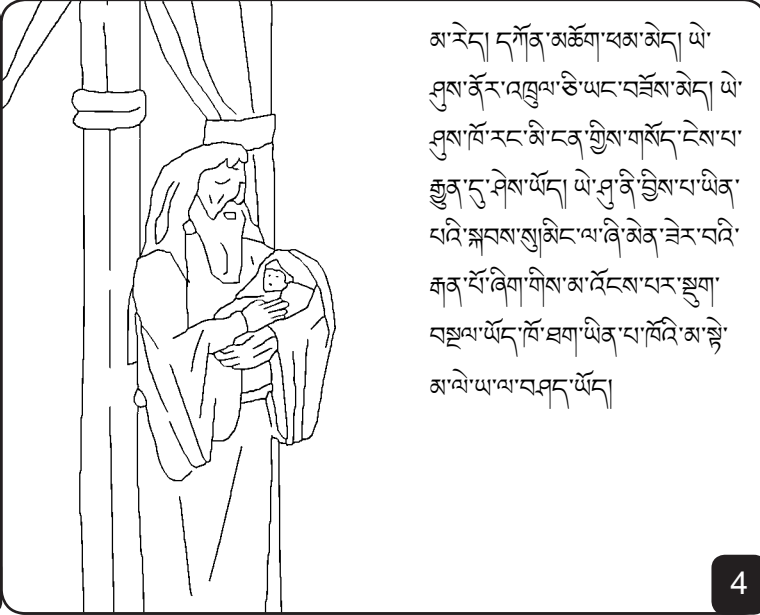 མ་རེད། དཀོན་མཆོག་ཕམ་མེད། ཡེ་
ཤུས་ནོར་འཁྲུལ་ཅི་ཡང་བཟོས་མེད། ཡེ་
ཤུས་ཁོ་རང་མི་ངན་གྱིས་གསོད་ངེས་པ་
རྒྱུན་དུ་ཤེས་ཡོད། ཡེ་ཤུ་ནི་བྱིས་པ་ཡིན་
པའི་སྐབས་སུ།མིང་ལ་ཞི་མེན་ཟེར་བའི་
རྒན་པོ་ཞིག་གིས་མ་འོངས་པར་སྡུག་
བསྔལ་ཡོད་ཁོ་ཐག་ཡིན་པ་ཁོའི་མ་སྟེ་
མ་ལེ་ཡ་ལ་བཤད་ཡོད།
4